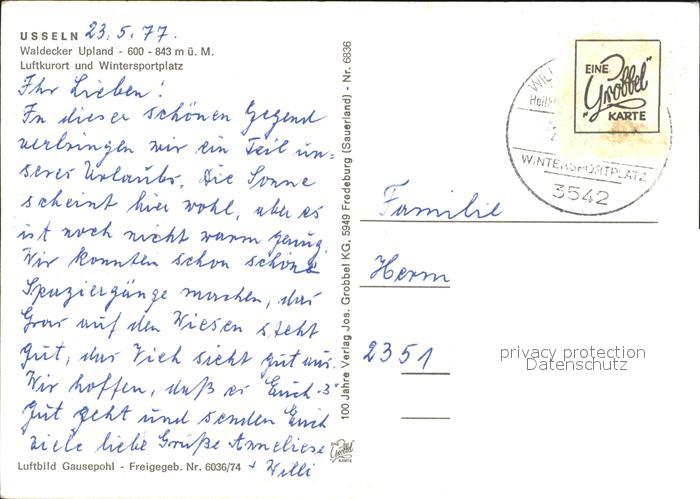 USSELN 23.5.77.
Waldecker Upland - 600 - 843 m ü. M.
Luftkurort und Wintersportplatz
Ihr Lieben!
In dieser schönen Gegend
verbringen wir ein Teil un=
seres Urlaubs. Die Sonne
scheint hier wohl, aber es
ist noch nicht warm genug.
Wir konnten schon schöne
Spaziergänge machen, das
Gras auf den Wiesen steht
gut, das Vieh sieht gut aus.
Wir hoffen, daß es Euch 3
gut geht und senden Euch
viele liebe Grüße Anneliese
+ Willi
Luftbild Gausepohl - Freigegeb. Nr. 6036/74
100 Jahre Verlag Jos. Grobbel KG, 5949 Fredeburg (Sauerland) - Nr. 6836
EINE
"Grobbel"
KARTE
WINTERSPORTPLATZ
3542
Familie
Herm
2351
privacy protection
Datenschutz
EINE
Grobbel
KARTE